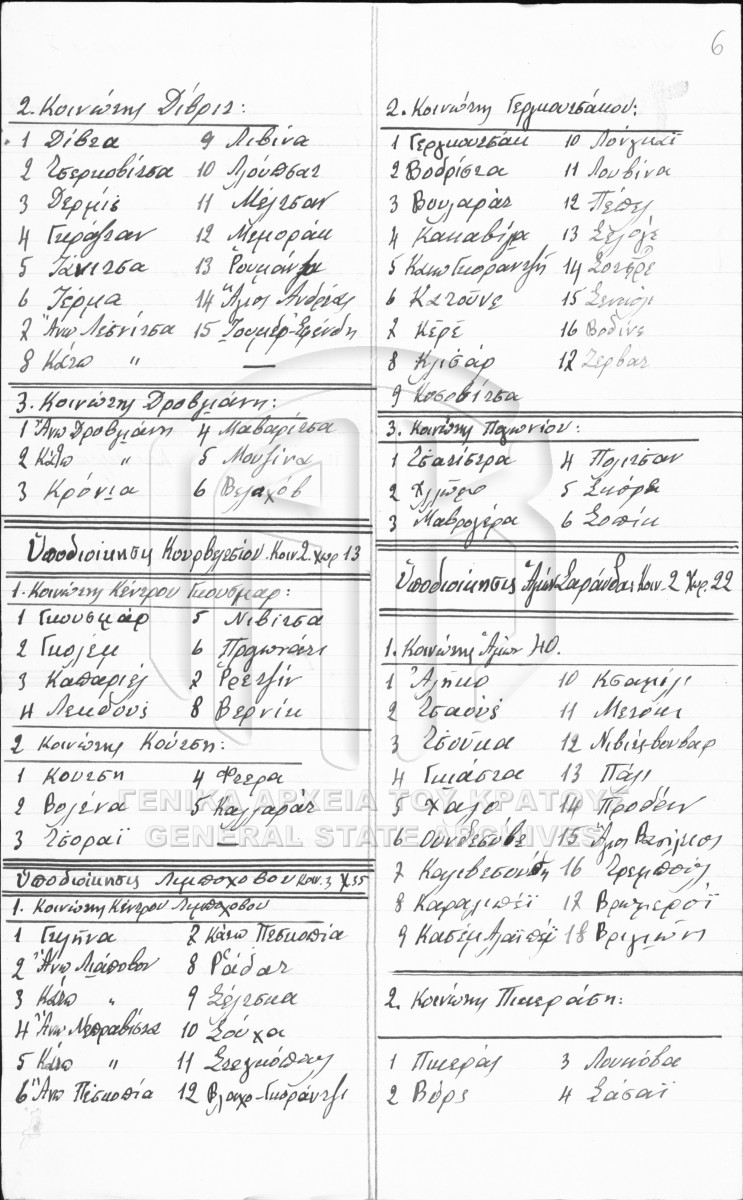 6
2. Κοινότης Δίβρις:
1 Δίβρα 9 Λιβίνα
2 Τσερκοβίτσα 10 Λούπσατ
3 Δερμίς 11 Μέλτσαν
4 Γκράψαν 12 Μεμοράκ
5 Γιάνιτσα 13 Ρουμάντζα
6 Γέρμα 14 Ἅγιος Ανδρέας
7 Ἄνω Λεσνίτσα 15 Τουμέρ-Ἐφένδη
8 Κάτω " —
3. Κοινότης Δροβιάνη:
1 Ἄνω Δροβιάνη 4 Μαλαρίτσα
2 Κάτω " 5 Μουζίνα
3 Κρόνια 6 Βελαχόβ
Ὑποδιοίκησις Κουρβελεσίου. Κοιν. 2. χωρ 13
1. Κοινότης Κέντρου Γκουσμάρ:
1 Γκουσμάρ 5 Νιβίτσα
2 Γκολέμ 6 Προγονάτι
3 Καπαριέλ 7 Ρρετζίν
4 Λεκδούς 8 Βερνίκ
2 Κοινότης Κούτση:
1 Κουτση 4 Φτερα
2 Βολένα 5 Καλλαράτ
3 Τσοραΐ —
Ὑποδιοίκησις Λιμποχόβου Κοιν. 3 Χ. 35
1. Κοινότης Κέντρου Λιμποχόβου
1 Γκλήνα 7 Κάτω Πεσκοπία
2 Ἄνω Λιάποβον 8 Ράδατ
3 Κάτω " 9 Σέλτσκα
4 Ἄνω Νεπραβίστα 10 Σούχα
5 Κάτω " 11 Στεγκόπολ
6 Ἄνω Πεσκοπία 12 Βλαχο-Γκοράντζι
2. Κοινότης Γεργκουτσάκου:
1 Γεργκουτσάκ 10 Λόνγκαϊ
2 Βοδρίστα 11 Λουβίνα
3 Βουλαράτ 12 Πέπελ
4 Κακαβίγια 13 Σελλιό
5 Κάτω Γκοραντζή 14 Σωτήρε
6 Κατούνε 15 Σενκόλι
7 Κρέ 16 Βοδίνε
8 Κλισάρ 17 Ζερβατ
9 Κοσοβίτσα
3. Κοινότης Πωγωνίου:
1 Τσατίστρα 4 Πολίτσαν
2 Χλωμό 5 Σκόρε
3 Μαυρογέρα 6 Σοπίκ
Ὑποδιοίκησις Ἁγίων Σαράνδας Κοιν. 2 Χωρ. 22
1. Κοινότης Ἁγίων 40.
1 Ἀλήκο 10 Κσαμίλι
2 Τσαούς 11 Μετόκι
3 Τσούκα 12 Νιβίτς-βουβαρ
4 Γκιάστα 13 Πάλι
5 Χάλο 14 Προδέν
6 Ουνδεσόβε 15 Ἅγιος Βασίλειος
7 Καλιβεσούση 16 Τρεμπούλ
8 Καραλιμπέϊ 17 Βρωμερόϊ
9 Κασέμ Αλήμπεϊ 18 Βριλιώνη
2. Κοινότης Πικεράση:
1 Πικεράς 3 Λουκόβα
2 Βόρς 4 Σάσαϊ
ΓΕΝΙΚΑ ΑΡΧΕΙΑ ΤΟΥ ΚΡΑΤΟΥΣ
GENERAL STATE ARCHIVES